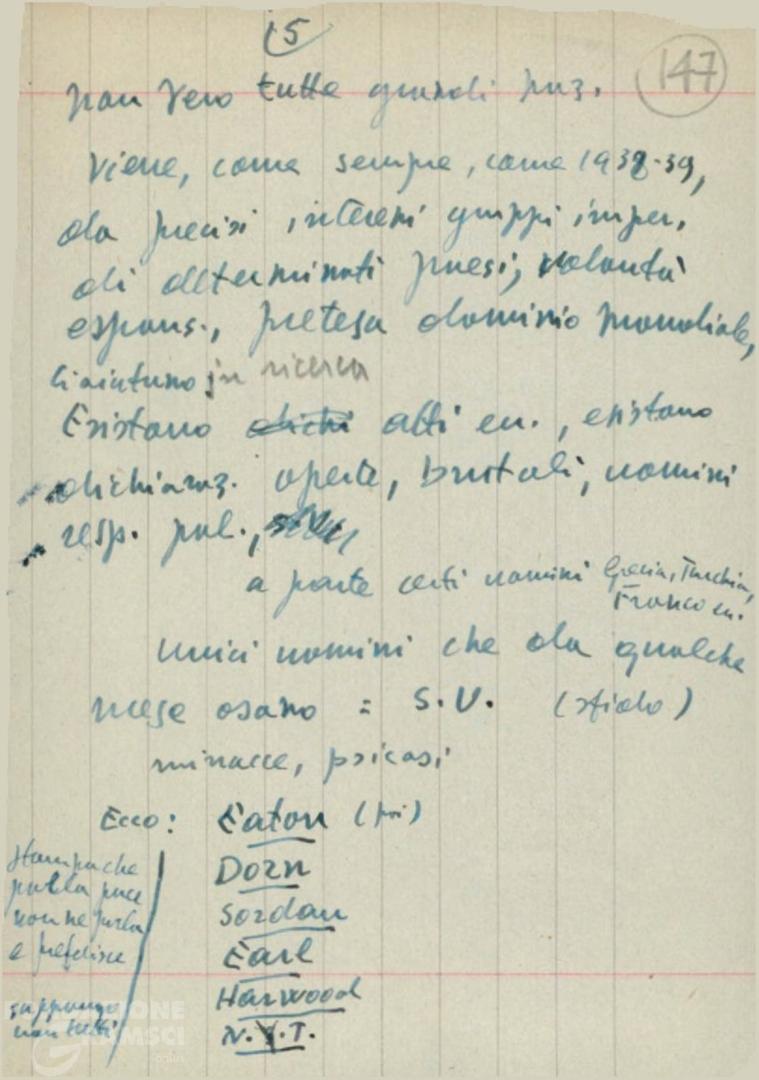 5
147
non vero tutte grandi puz.
viene, come sempre, come 1938-39,
da precisi interessi gruppi imper.
di determinati paesi, volontà
espans., pretesa dominio mondiale,
in ricerca
Esistono dichi atti ecc., esistono
dichiaraz. aperte, brutali, uomini
resp. pol.,
a parte certi uomini Grecia, Turchia,
Franco ecc.
Unici uomini che da qualche
mese osano = S.U. (sfido)
minacce, psicosi
Ecco: Eaton (poi)
Dorn
Jordan
Earl
Harwood
N.Y.T.
Stampa che
parla pace
non ne parla
e preferisce
suppongo
non tutti
FONDAZIONE
GRAMSCI